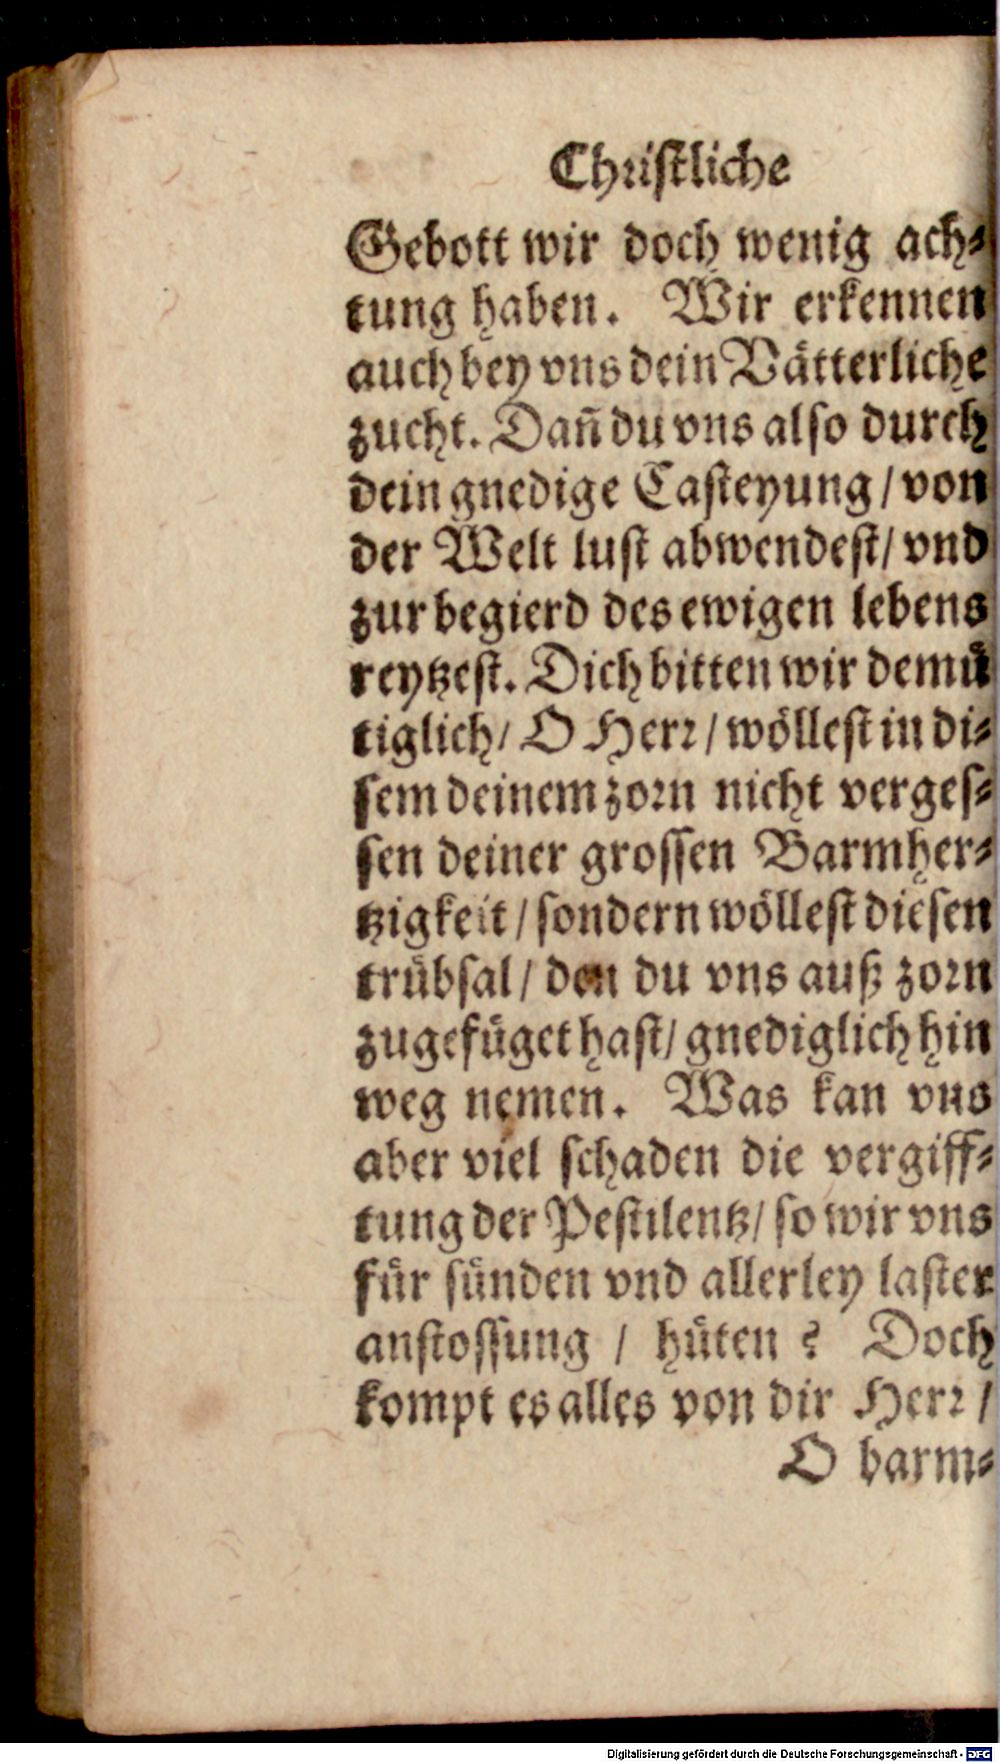 Christliche
Gebott wir doch wenig ach⸗
tung haben. Wir erkennen
auch bey vns dein Vätterliche
zucht. Dañ du vns also durch
dein gnedige Casteyung / von
der Welt lust abwendest / vnd
zur begierd des ewigen lebens
reytzest. Dich bitten wir demü
tiglich / O Herr / wöllest in di⸗
sem deinem zorn nicht verges⸗
sen deiner grossen Barmher⸗
tzigkeit / sondern wöllest diesen
trübsal / den du vns auß zorn
zugefüget hast / gnediglich hin
weg nemen. Was kan vns
aber viel schaden die vergiff⸗
tung der Pestilentz / so wir vns
für sünden vnd allerley laster
anstossung / hüten ? Doch
kompt es alles von dir Herr /
O barm⸗
Digitalisierung gefördert durch die Deutsche Forschungsgemeinschaft - DFG